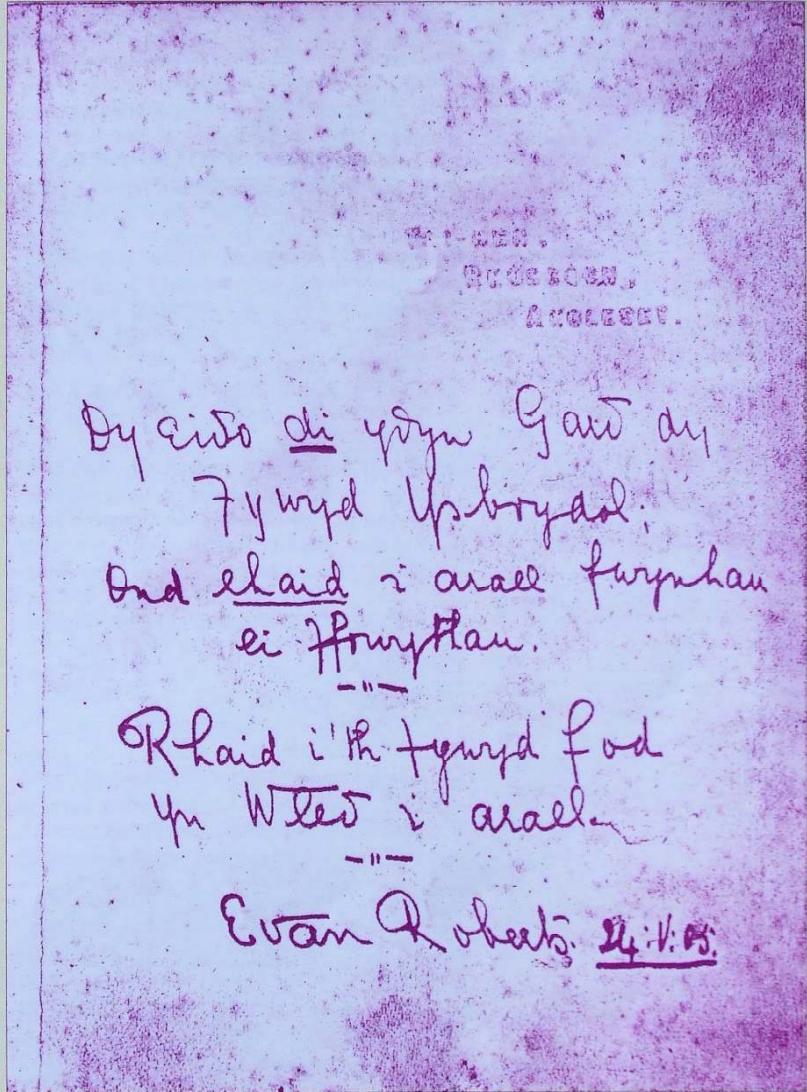 RHOSGOCH,
ANGLESEY.
Dy eiđo di yđyw Garđ dy
Fywyd Ysbrydol;
Ond rhaid i arall fwynhau
ei Ffrwythau.
Rhaid i'th fywyd fod
yn Wleđ i arall
Evan Roberts. 24:V:05.